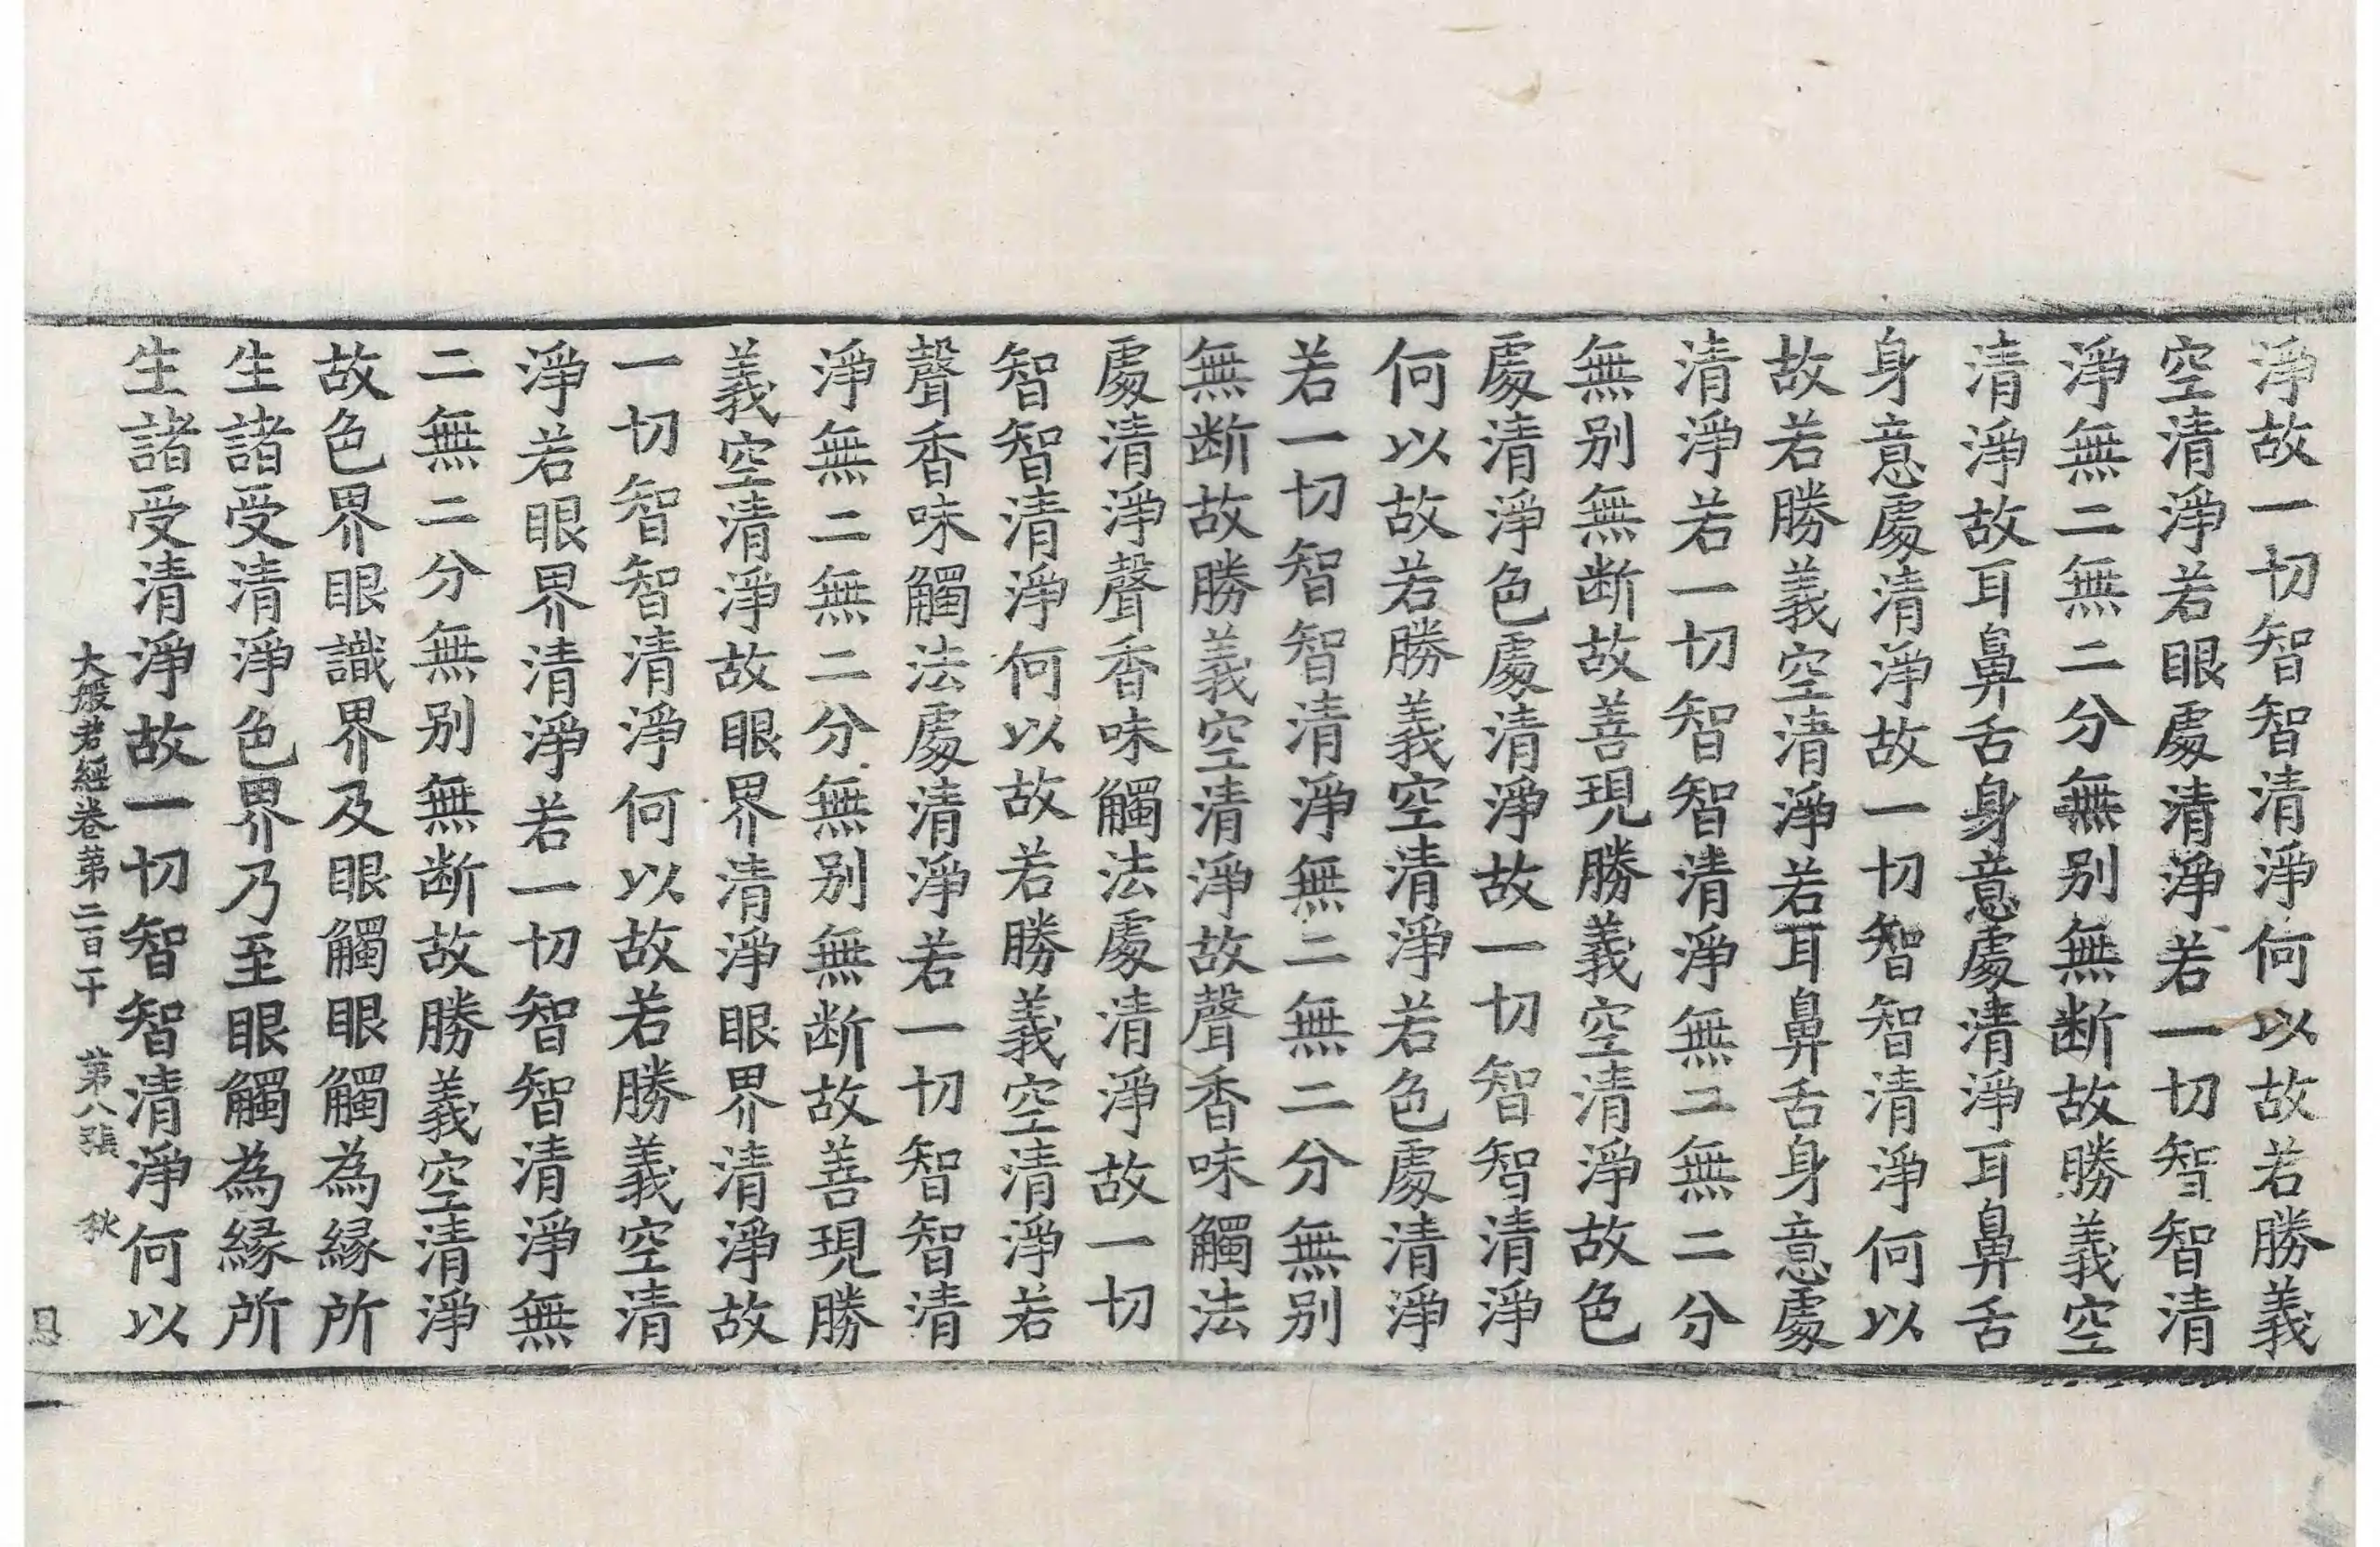 淨故一切智智清淨何以故若勝義
空清淨若眼處清淨若一切智智清
淨無二無二分無別無断故勝義空
清淨故耳鼻舌身意處清淨耳鼻舌
身意處清淨故一切智智清淨何以
故若勝義空清淨若耳鼻舌身意處
清淨若一切智智清淨無二無二分
無別無断故善現勝義空清淨故色
處清淨色處清淨故一切智智清淨
何以故若勝義空清淨若色處清淨
若一切智智清淨無二無二分無別
無断故勝義空清淨故聲香味觸法
處清淨聲香味觸法處清淨故一切
智智清淨何以故若勝義空清淨若
聲香味觸法處清淨若一切智智清
淨無二無二分無別無断故善現勝
義空清淨故眼界清淨眼界清淨故
一切智智清淨何以故若勝義空清
淨若眼界清淨若一切智智清淨無
二無二分無別無断故勝義空清淨
故色界眼識界及眼觸眼觸為緣所
生諸受清淨色界乃至眼觸為緣所
生諸受清淨故一切智智清淨何以
大般若經卷第二百十 第八張 秋